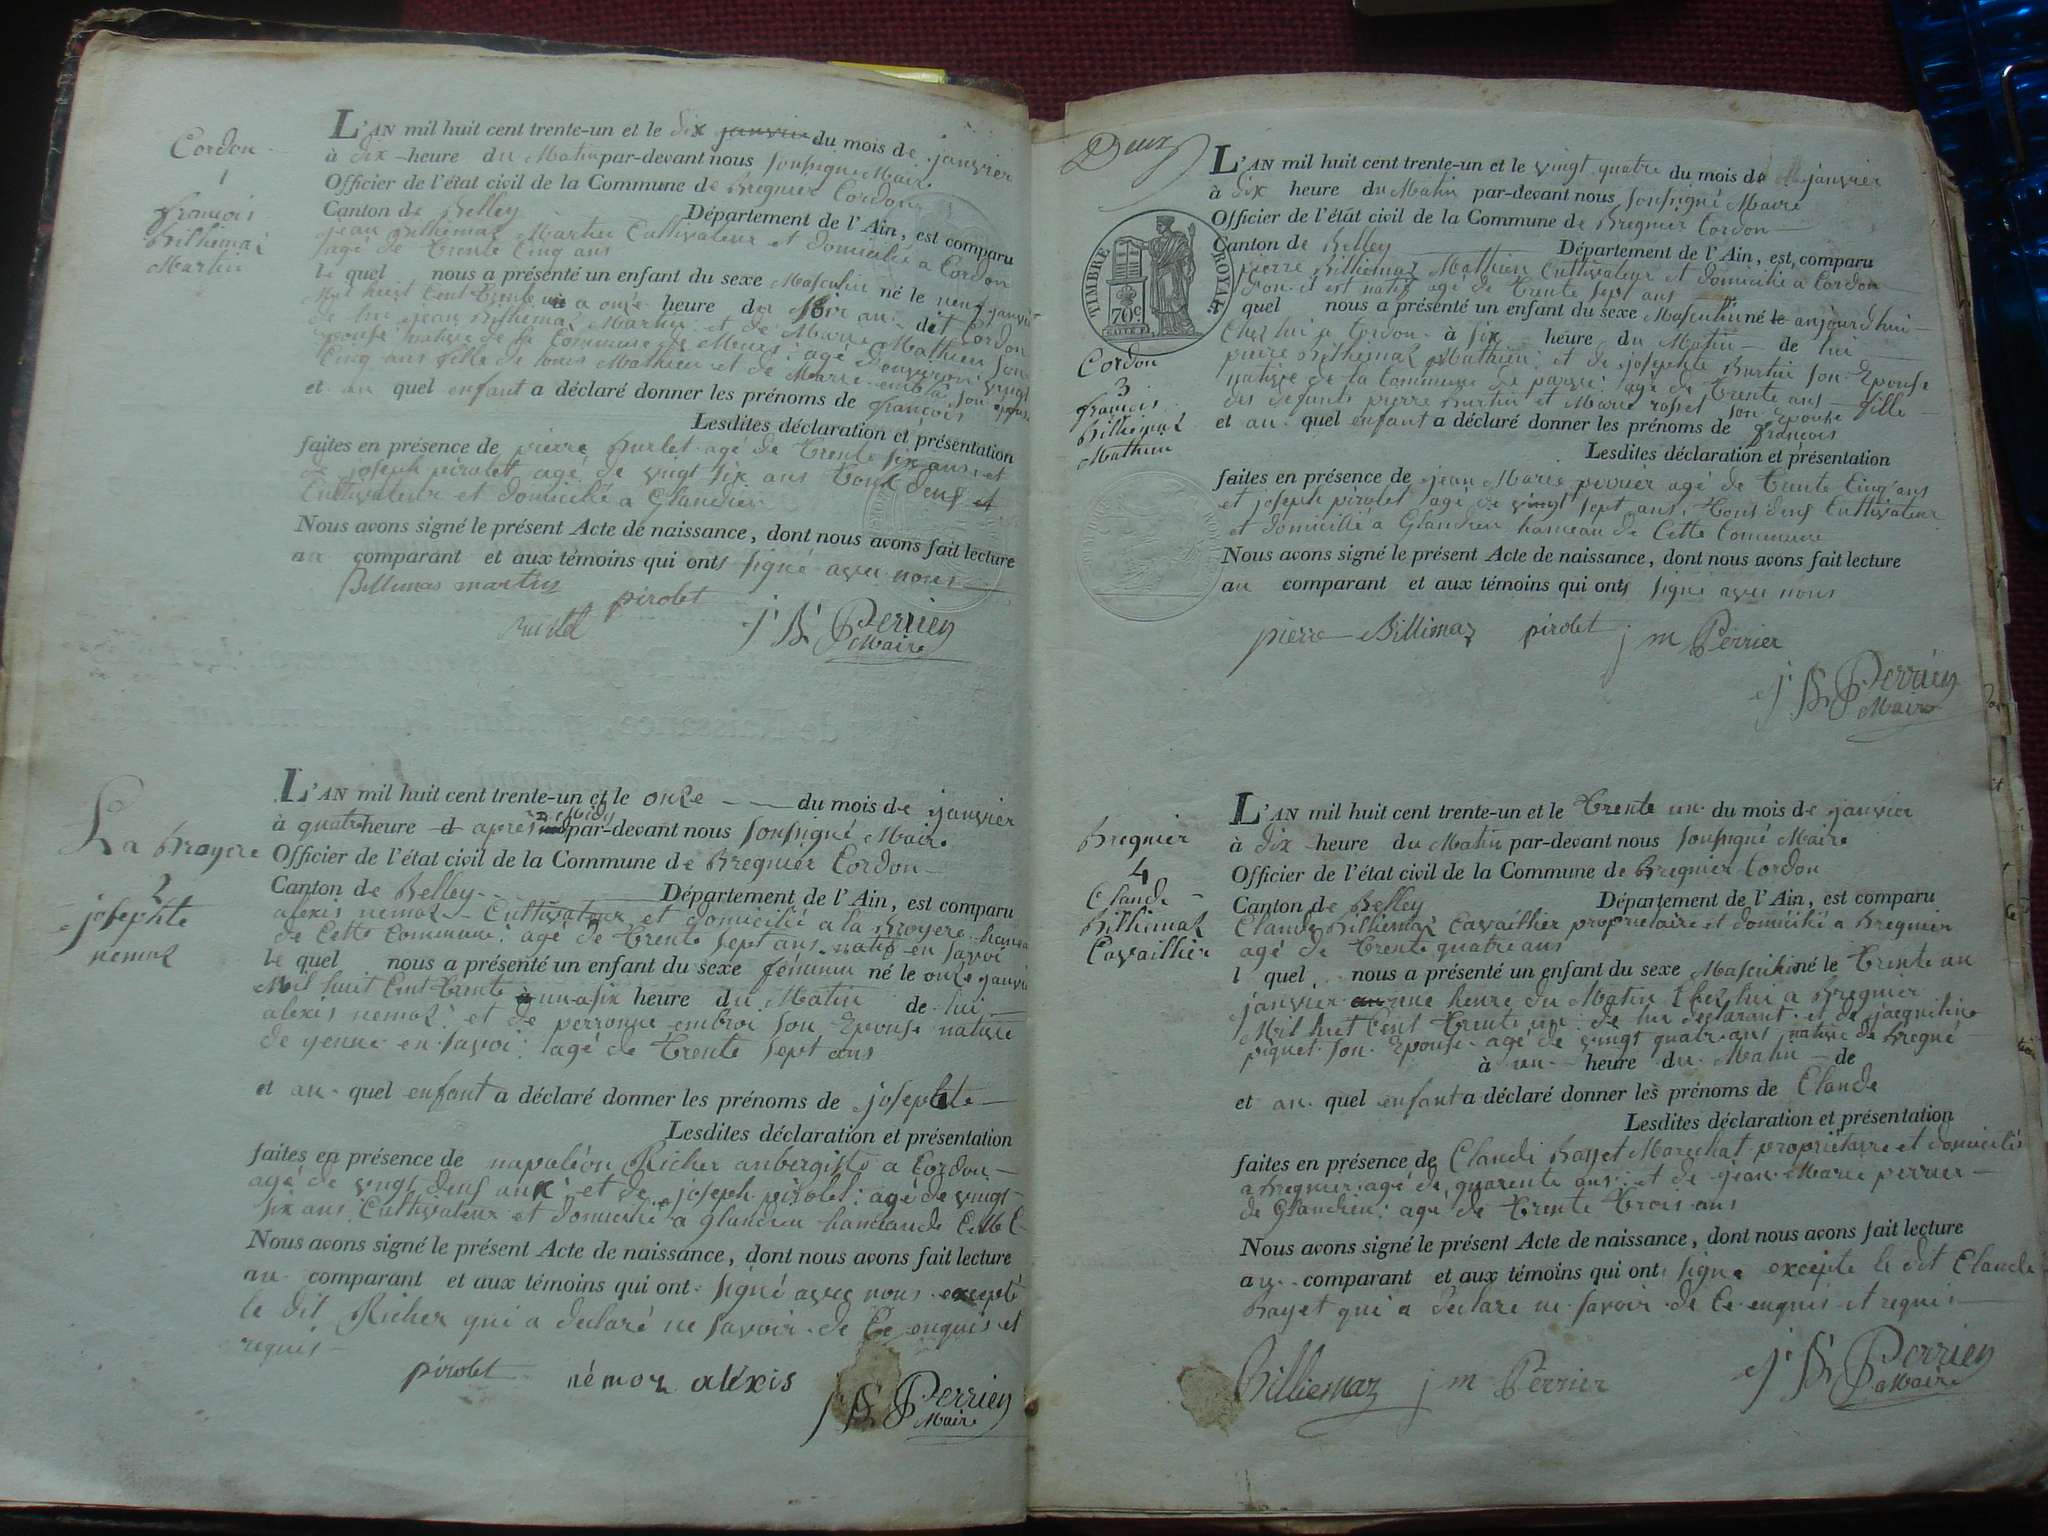 Cordon
1
françois
Billiemaz
Martin
L'AN mil huit cent trente-un et le dix janvier du mois de janvier
à dix heure du Matin par-devant nous soussigné Maire
Officier de l'état civil de la Commune de Bregnier Cordon
Canton de Belley Département de l'Ain, est comparu
jean Billiemaz Martin Cultivateur et domicilié a Cordon
agé de trente Cinq ans
le quel nous a présenté un enfant du sexe Masculin né le neuf janvier
Mil huit Cent trente un a onze heure du soir au dit Cordon
de lui jean Billiemaz Martin et de Marie Mathieu son
épouse native de la Commune de agé d'environ vingt
Cinq ans fille de louis Mathieu et de Marie son épouse
et au quel enfant a déclaré donner les prénoms de françois
Lesdites déclaration et présentation
faites en présence de pierre Burlet agé de trente six ans et
de joseph pirolet agé de vingt six ans tous deux et
Cultivateur et domicilié a Glandieu
Nous avons signé le présent Acte de naissance, dont nous avons fait lecture
au comparant et aux témoins qui ont signé avec nous
Billiemas martin
pirolet
Burlet
j B Perrier
Maire
La Broyere
2
josephte
nemoz
L'AN mil huit cent trente-un et le onze du mois de janvier
à quatre heure d apres Midy par-devant nous soussigné Maire
Officier de l'état civil de la Commune de Bregnier Cordon
Canton de Belley Département de l'Ain, est comparu
alexis nemoz Cultivateur et domicilié a la Broyere hameau
de Cette Commune agé de trente sept ans natif en savoi
le quel nous a présenté un enfant du sexe féminin né le onze janvier
Mil huit Cent trente un a six heure du Matin de lui
alexis nemoz et de perronne embroi son Epouse native
de yenne en savoi agé de trente sept ans
et au quel enfant a déclaré donner les prénoms de josephte
Lesdites déclaration et présentation
faites en présence de napoléon Richer aubergiste a Cordon
agé de vingt deux ans et de joseph pirolet agé de vingt
six ans Cultivateur et domicilié a glandieu hameau de Cette C
Nous avons signé le présent Acte de naissance, dont nous avons fait lecture
au comparant et aux témoins qui ont signé avec nous excepté
le dit Richer qui a declaré ne savoir de Ce enquis et
requis
pirolet némoz aléxis
j B Perrier
Maire
Deux
TIMBRE ROYAL
70c
Cordon
3
françois
Billiemaz
Mathieu
L'AN mil huit cent trente-un et le vingt quatre du mois de janvier
à dix heure du Matin par-devant nous soussigné Maire
Officier de l'état civil de la Commune de Bregnier Cordon
Canton de Belley Département de l'Ain, est comparu
pierre Billiemaz Mathieu Cultivateur et domicilié a Cordon
d'ou il est natif agé de trente sept ans
quel nous a présenté un enfant du sexe Masculin né le aujourd'hui
Chez lui a Cordon à six heure du Matin de lui
pierre Billiemaz Mathieu et de josephte Burtin son Epouse
native de la Commune de agé de trente ans fille
des defunts pierre Burtin et Marie rosset son Epouse
et au quel enfant a déclaré donner les prénoms de françois
Lesdites déclaration et présentation
faites en présence de jean Marie perrier agé de trente Cinq ans
et joseph pirolet agé de vingt sept ans, tous deux Cultivateur
et domicilié a Glandieu hameau de Cette Commune
Nous avons signé le présent Acte de naissance, dont nous avons fait lecture
au comparant et aux témoins qui ont signé avec nous
pierre Billiemaz pirolet j m Perrier
j B Perrier
Maire
Bregnier
4
Claude
Billiemaz
Cavaillier
L'AN mil huit cent trente-un et le trente un du mois de janvier
à dix heure du Matin par-devant nous soussigné Maire
Officier de l'état civil de la Commune de Bregnier Cordon
Canton de Belley Département de l'Ain, est comparu
Claude Billiemaz Cavaillier propriétaire et domicilié a Bregnier
agé de trente quatre ans
l quel nous a présenté un enfant du sexe Masculin né le trente un
janvier a une heure du Matin Chez lui a Bregnier
Mil huit Cent trente un de lui declarant et de jacqueline
piquet son Epouse agé de vingt quatre ans native de Bregné
à un heure du Matin de
et au quel enfant a déclaré donner les prénoms de Claude
Lesdites déclaration et présentation
faites en présence de Claude Bayet Marechat propriétaire et domicilié
a Bregnier agé de quarente ans et de jean Marie perrier
de Glandieu agé de trente trois ans
Nous avons signé le présent Acte de naissance, dont nous avons fait lecture
au comparant et aux témoins qui ont signé excepté le dit Claude
Bayet qui a declaré ne savoir de Ce enquis et requis
Billiemaz j m Perrier
j B Perrier
Maire